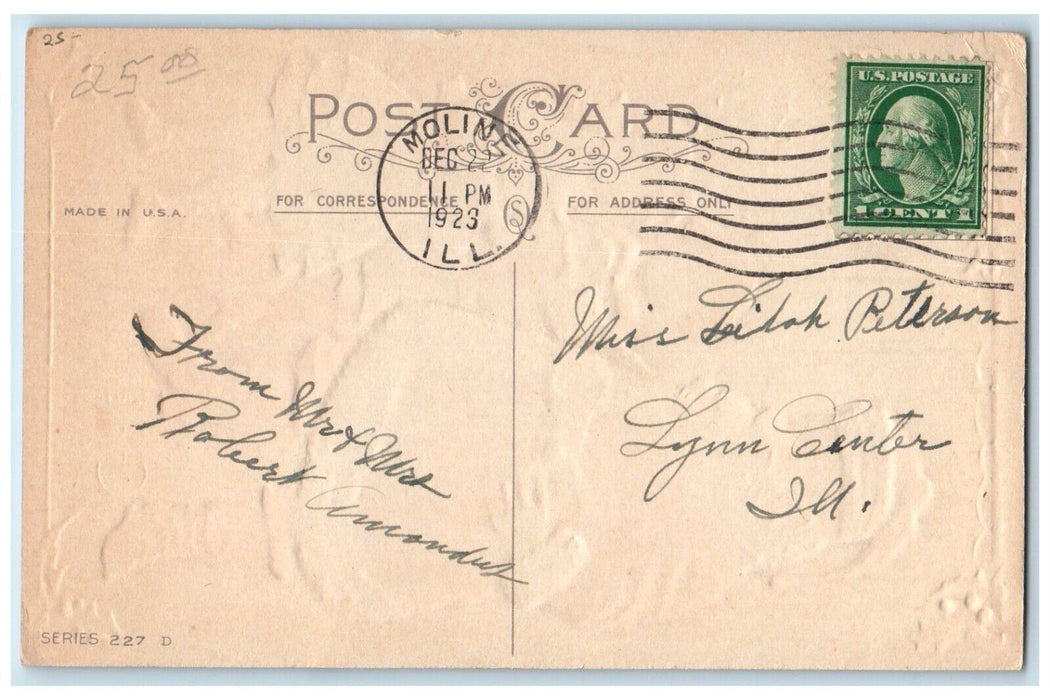 25-
25 00
POST CARD
U.S. POSTAGE
1 CENT 1
MOLINE
DEC 22
11 PM
1923
ILL.
MADE IN U.S.A.
FOR CORRESPONDENCE
FOR ADDRESS ONLY
S
From Mr & Mrs
Robert
Miss Lilah Peterson
Lynn Center
Ill.
SERIES 227 D